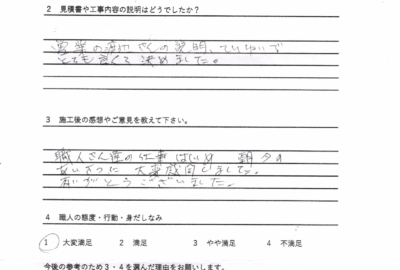 2 見積書や工事内容の説明はどうでしたか？
営業の渡辺さんの説明、ていねいで
とても良くて決めました。
3 施工後の感想やご意見を教えて下さい。
職人さん達の仕事はじめ 朝夕の
あいさつに 大変感自しまして。
ありがとうございました。
4 職人の態度・行動・身だしなみ
1 大変満足 2 満足 3 やや満足 4 不満足
今後の参考のため３・４を選んだ理由をお願いします。